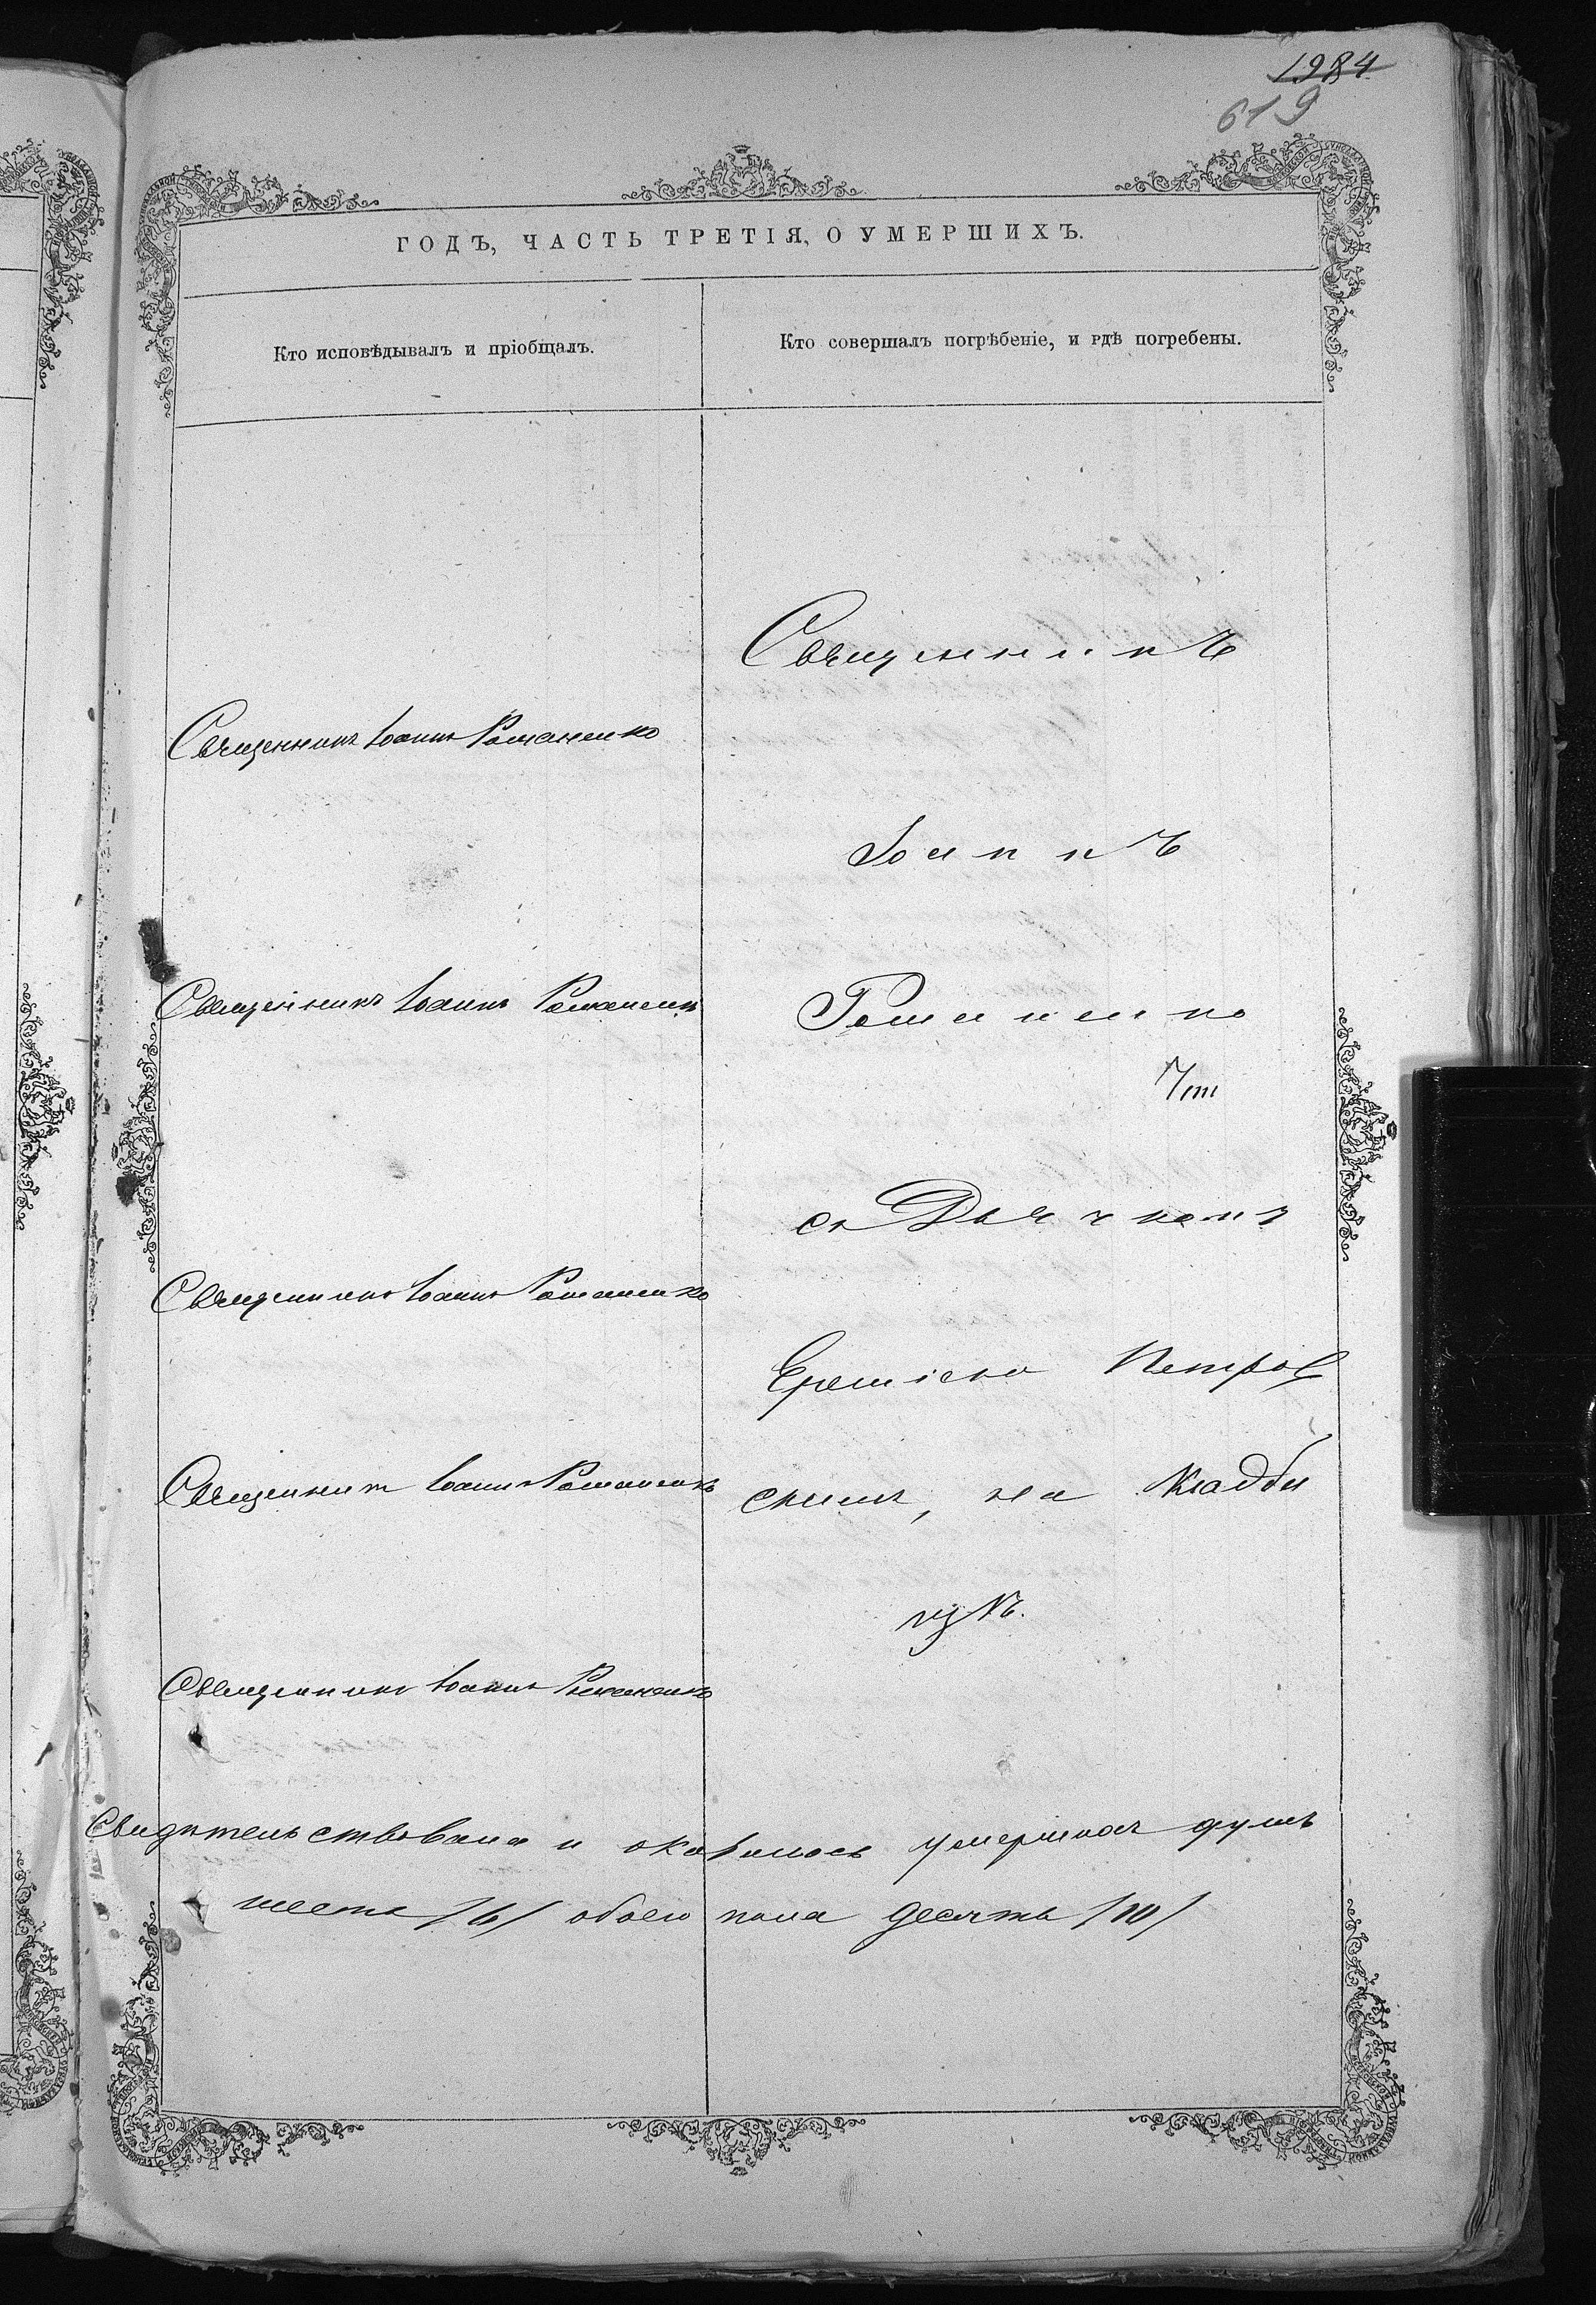 1984
619
ГОДЪ, ЧАСТЬ ТРЕТІЯ, О УМЕРШИХЪ.
Кто исповѣдывалъ и пріобщалъ.
Кто совершалъ погрѣбеніе, и гдѣ погребены.
Священникъ
Священникъ Іоаннъ Романенко
Іоаннъ
Священникъ Іоаннъ Романенко
Романенко
съ Дьячкомъ
Священникъ Іоаннъ Романенко
Петров
Священникъ Іоаннъ Романенко
скимъ, на Кладби
щѣ.
Священникъ Іоаннъ Романенко
Свидѣтельствована и оказалось умершихъ душъ
шесть /6/ обоего пола десять /10/